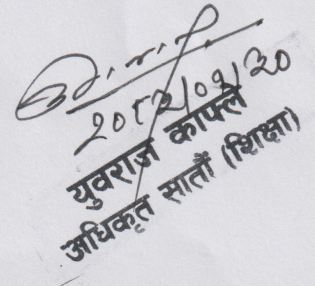 २०८२/०१/२०
युवराज काफ्ले
अधिकृत सातौं (शिक्षा)